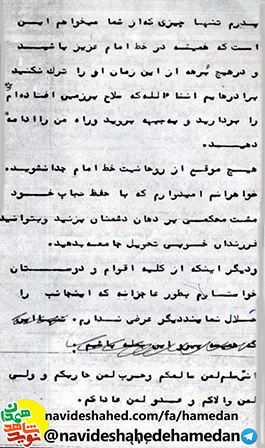 پدرم تنها چیزی که از شما میخواهم ایـــن
است که همیشه در خط امام عزیز باشیـــد
و در هیچ برهه از این زمان او را ترک نکنید
برادرهایم انشاءالله که سلاح برزمین افتاده ام
را بردارید و به جبهه بروید و راه من را ادامه
دهیــد.
هیچ موقع از روحانیت خط امام جدا نشوید.
خواهرانم امیدوارم که با حفظ حجاب خـــود
مشت محکمی بر دهان دشمنان بزنید و بتوانید
فرزندان خـــوبی تحویل جامعه بدهید.
و دیگر اینکه از کلیه اقوام و دوستـــان
خواستـارم بطور عاجزانه که اینجانب را
حلال نمایند دیگر عرضی نـدارم.
انی سلم لمن سالمکم وحرب لمن حاربکم و ولـی
لمن والاکم و عـدو لمن عاداکم.
navideshahed.com/fa/hamedan
@navideshahedehamedan